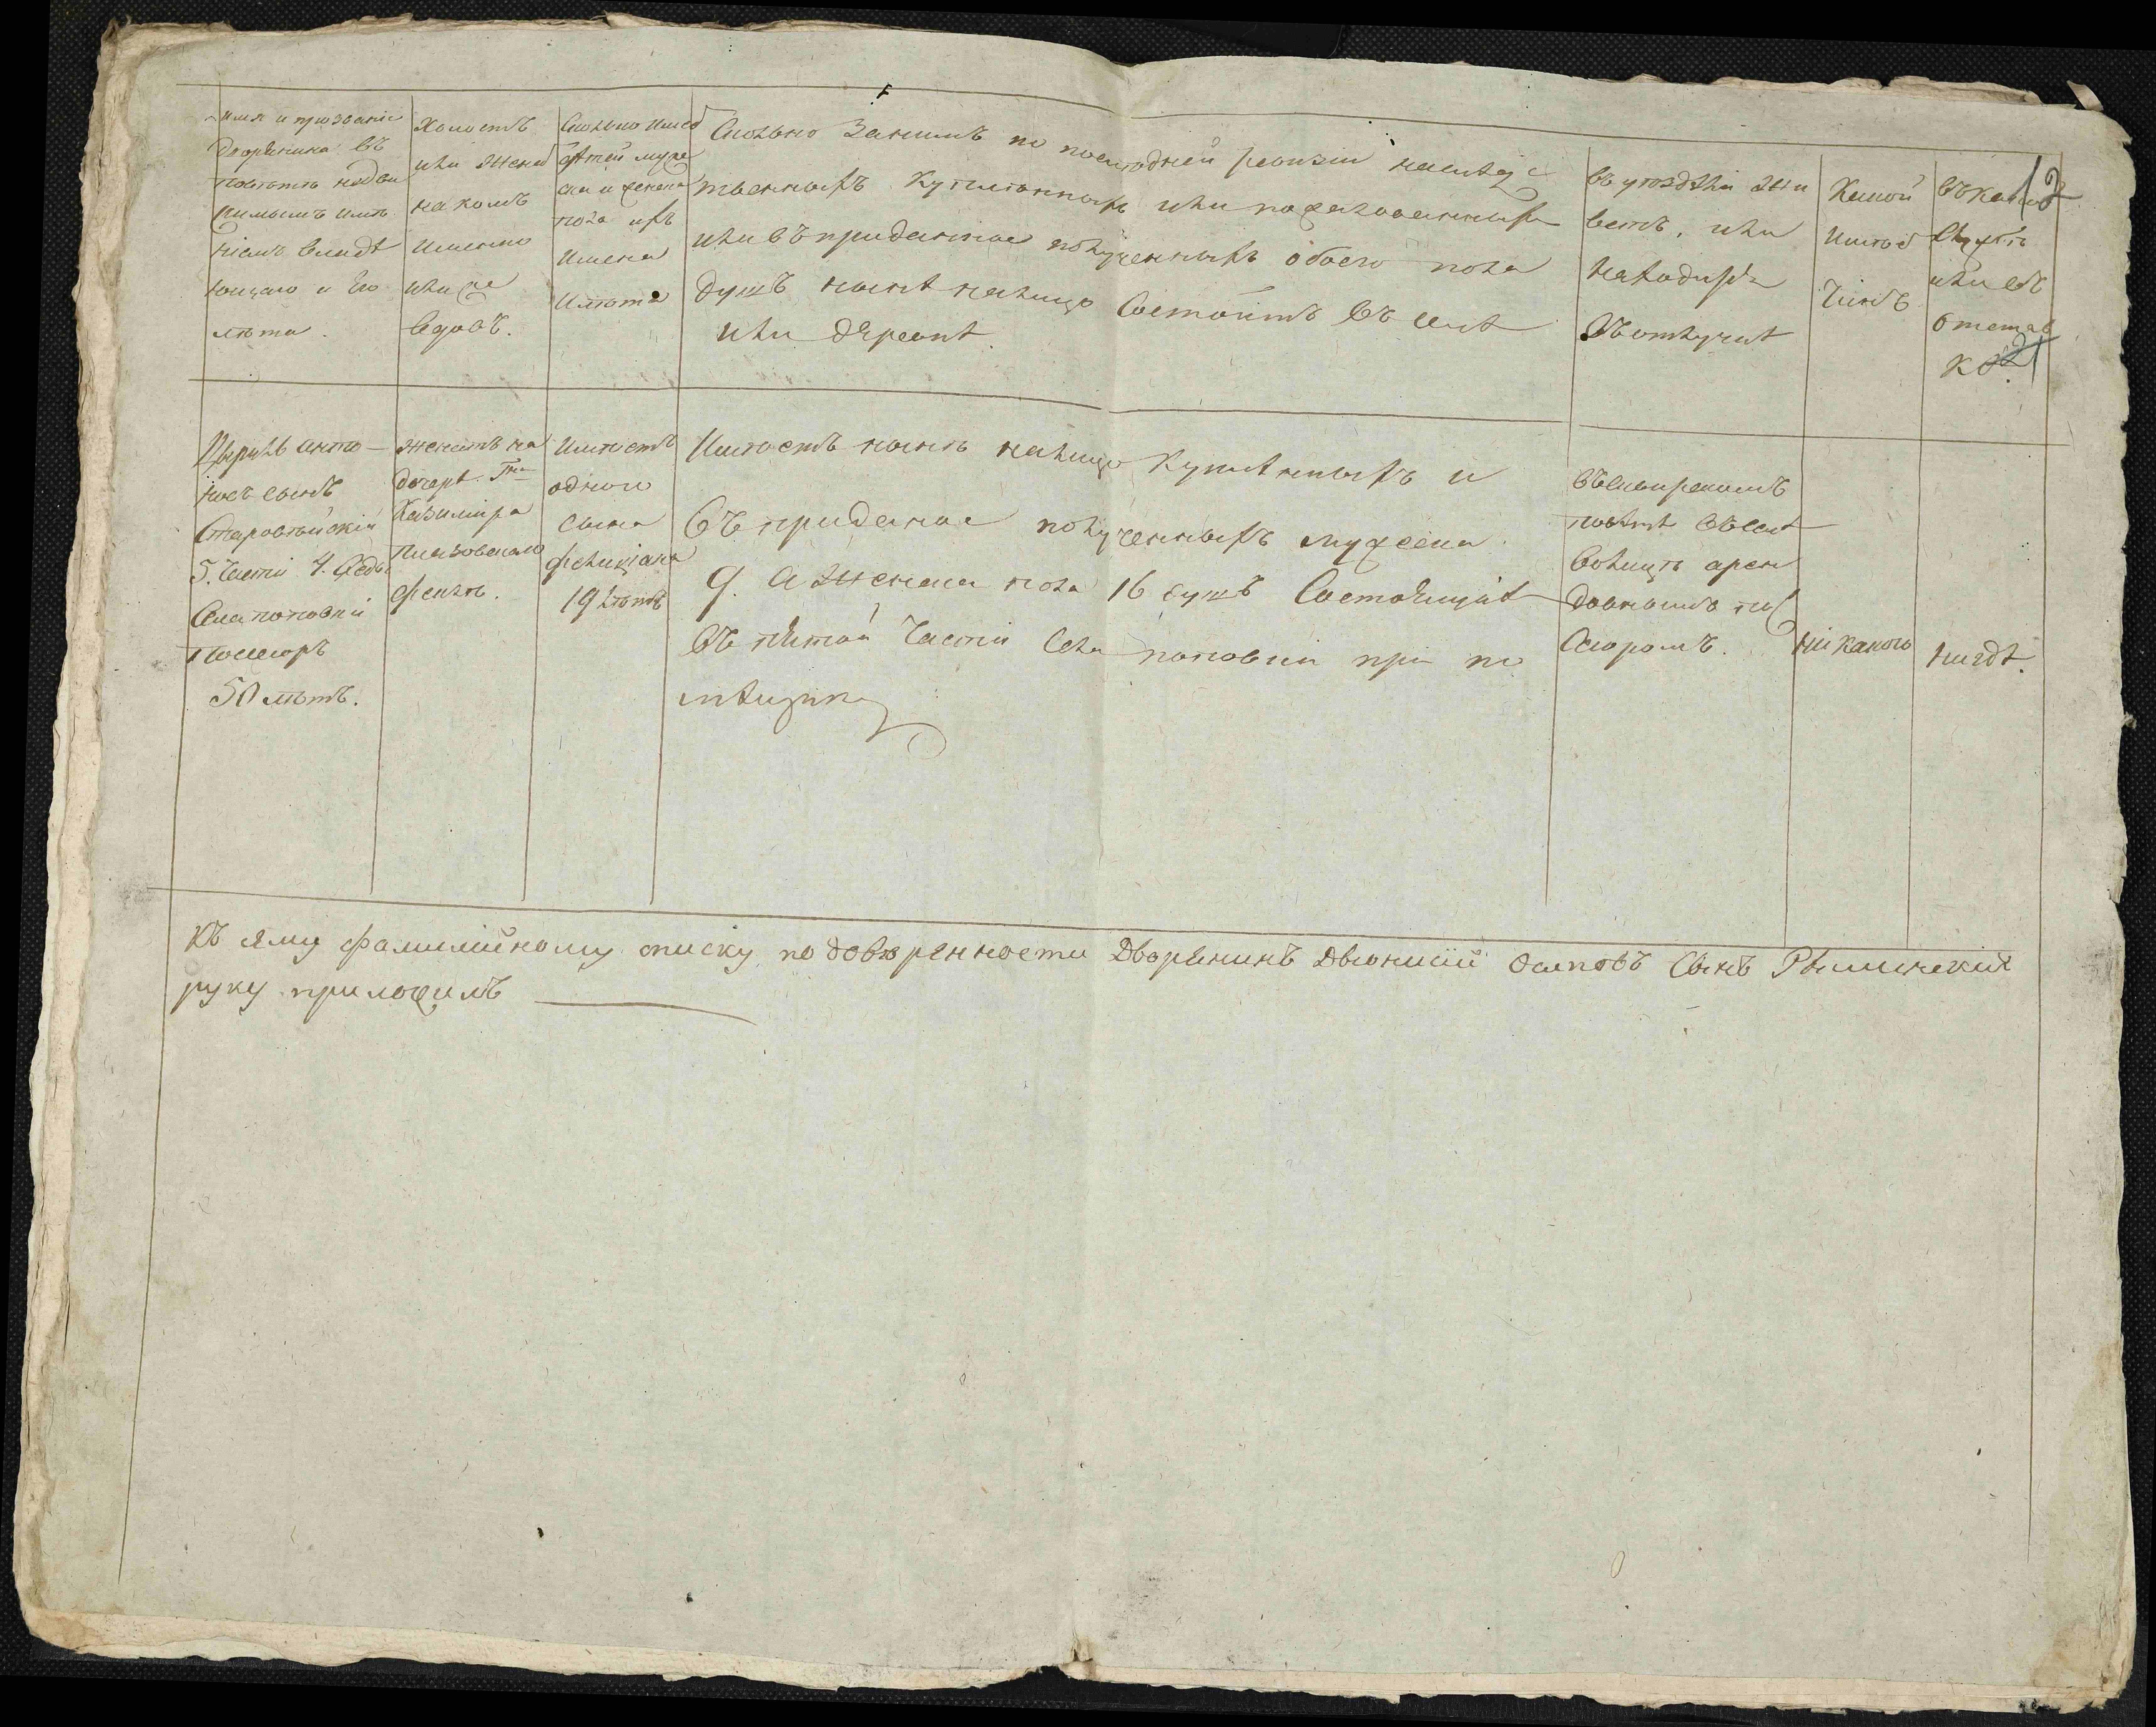 12
21
Имя и прозваніе
дворянина въ
повѣтѣ недви
жимымъ имѣ
ніемъ владѣ
ющаго и Его
лѣта.
Холостъ
или женат
на комъ
именно
или же
вдовъ.
Сколько имеет
дѣтей муже
ска и женска
пола ихъ
имена
и лѣта
Сколько за нимъ по последней ревизіи наслѣдс
твенныхъ купленныхъ или пожалованныхъ
или въ приданное полученныхъ обоего пола
душъ нынѣ налицо Состоитъ въ селѣ
или дѣревнѣ.
въ уѣздѣ ли жи
ветъ, или
находится
въ отлучкѣ
Какой
имѣет
чинъ
въ какой
службѣ
или въ
отстав
кѣ.
Цырилъ анто-
новъ сынъ
5. Части
Села поповки
посесоръ
50 лѣтъ.
женатъ на
дочерѣ Гна
Казимира
имѣетъ
одного
сына
фелиціана
19 лѣтъ
Имѣетъ нынѣ налицо купленныхъ и
въ приданое полученныхъ мужеска
9. а женска пола 16 душъ Состоящихъ
въ пятой Части Села поповки при по
мѣщику
повѣтѣ въ селѣ
арен
довнымъ пос
Сесоромъ.
Ни какого
нигдѣ.
Къ сему фамилийному списку по довѣренности Дворянинъ Двонисій осиповъ Сынъ
руку приложилъ